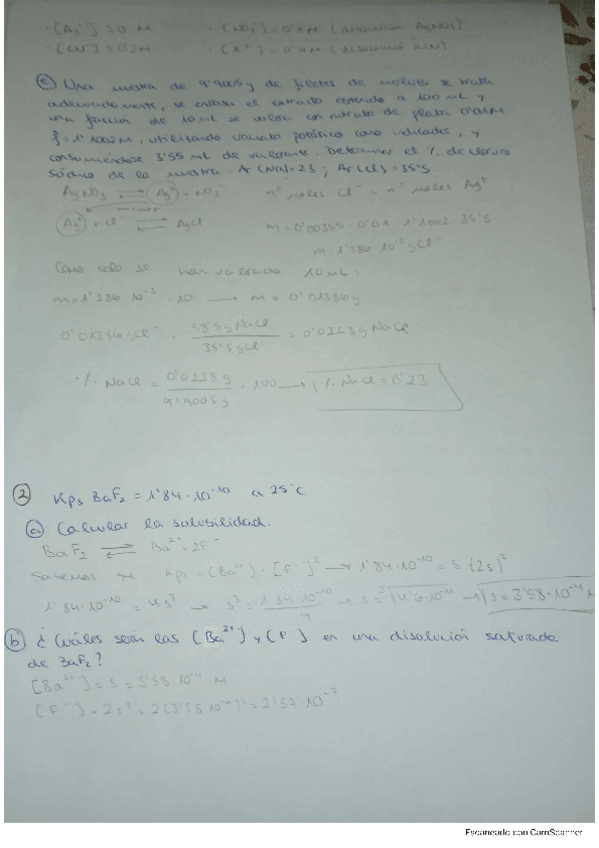 · [Ag⁺] ≃ 0 M · [NO₃⁻] = 0'1M (disolución AgNO₃)
· [CN⁻] = 0'2M · [K⁺] = 0'4M (disolución KCN)
c) Una muestra de 9'9005g de filetes de merluza se trata
adecuadamente, se enrasa el extracto obtenido a 100 mL y
una fracción de 10 mL se valora con nitrato de plata 0'01M
f=1'1002M, utilizando cromato potásico como indicador, y
consumiéndose 3'55 mL de valorante. Determinar el % de cloruro
sódico de la muestra. Ar(Na)=23; Ar(Cl)=35'5
AgNO₃ ⇌ Ag⁺ + NO₃⁻ nº moles Cl⁻ = nº moles Ag⁺
Ag⁺ + Cl⁻ ⇌ AgCl m = 0'00355 · 0'01 · 1'1002 · 35'5
m = 1'386 10⁻³ g Cl⁻
Como solo se han valorado 10 mL:
m = 1'386 10⁻³ · 10 → m = 0'01386g
0'01386 g Cl⁻ · 58'5g NaCl / 35'5g Cl = 0'0228g NaCl
·% NaCl = 0'0228 g / 9'9005g · 100 → % NaCl = 0'23
2) Kps BaF₂ = 1'84·10⁻¹⁰ a 25ºC
a) Calcular la solubilidad.
BaF₂ ⇌ Ba²⁺ + 2F⁻
Sabemos que Kps = [Ba²⁺] · [F⁻]² → 1'84·10⁻¹⁰ = s (2s)²
1'84·10⁻¹⁰ = 4s³ → s³ = 1'84·10⁻¹⁰ / 4 → s = ³√4'6·10⁻¹¹ → s = 3'58·10⁻⁴ M
b) ¿Cuáles serán las [Ba²⁺] y [F⁻] en una disolución saturada
de BaF₂?
[Ba²⁺] = s = 3'58 10⁻⁴ M
[F⁻] = 2s² = 2(3'58 10⁻⁴)² = 2'57·10⁻⁷
Escaneado con CamScanner